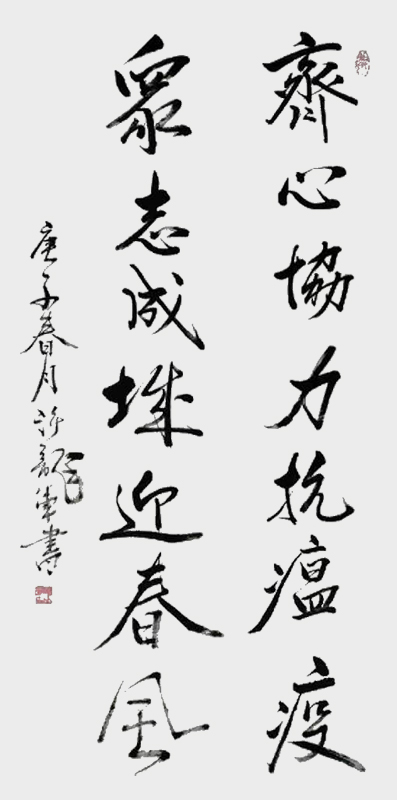 齊心協力抗瘟疫
眾志成城迎春風
庚子春月許龍華書